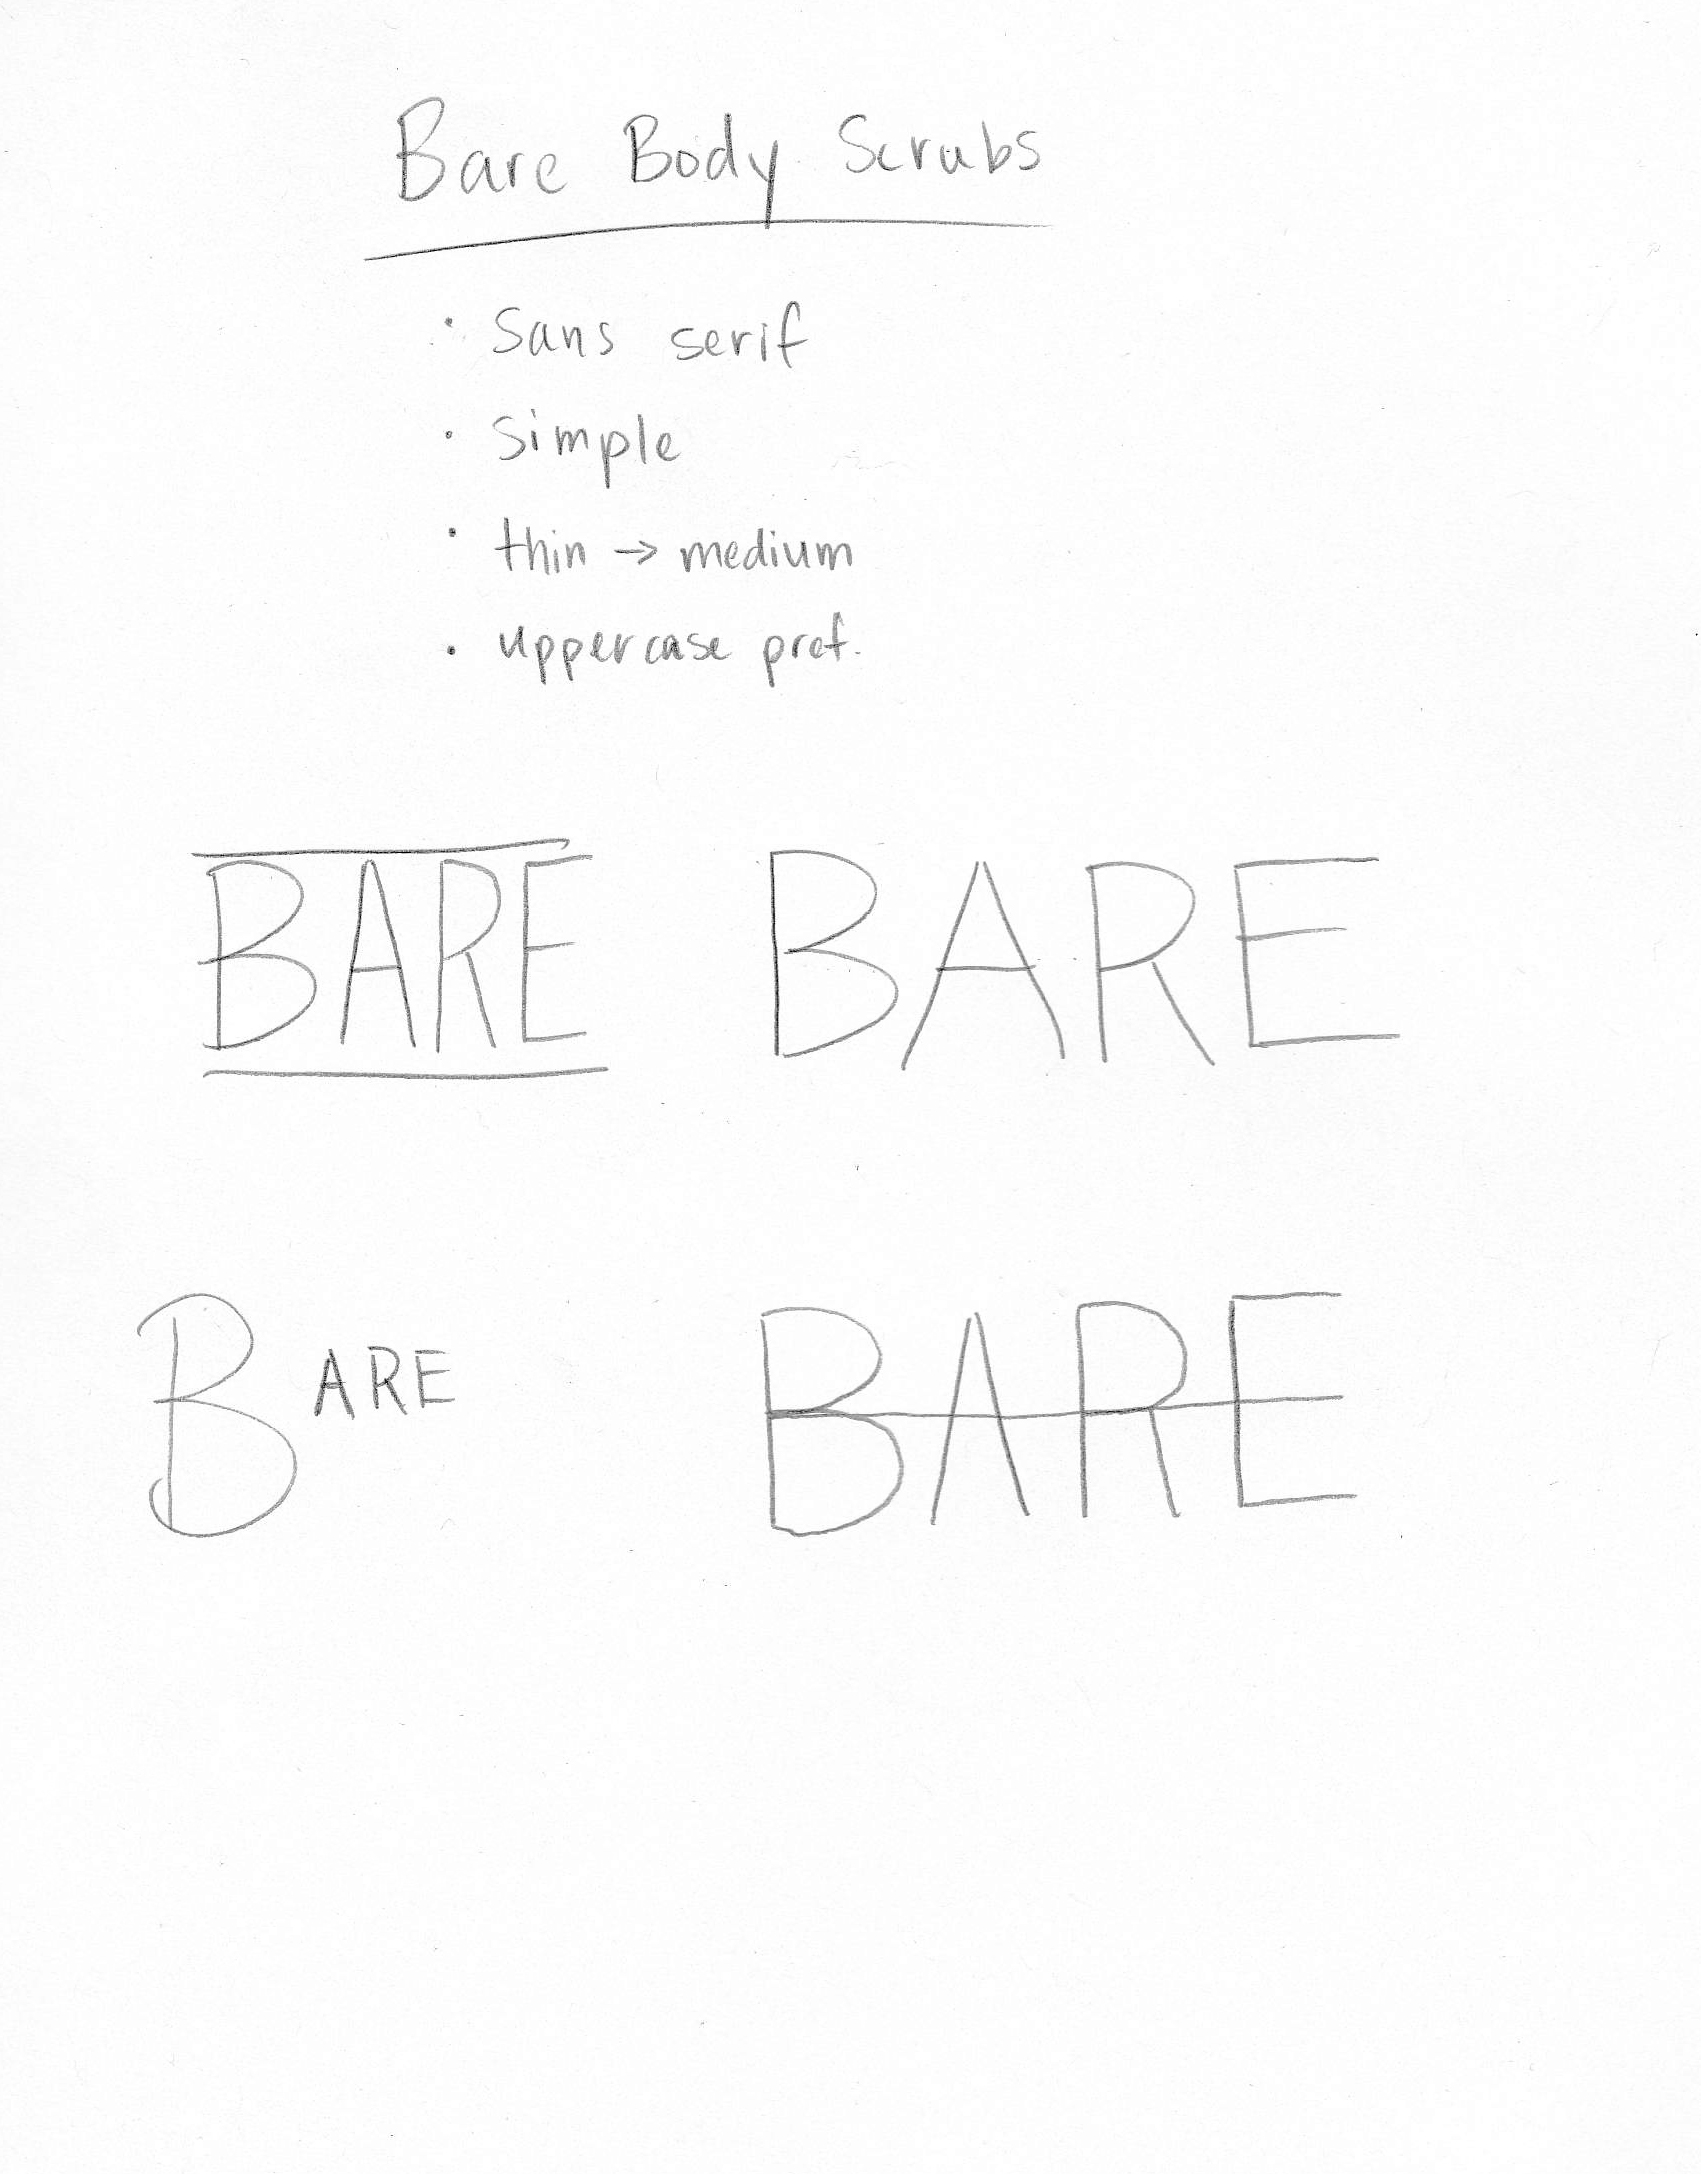 Bare Body Scrubs
· sans serif
· simple
· thin → medium
· uppercase pref.
BARE BARE
BARE BARE